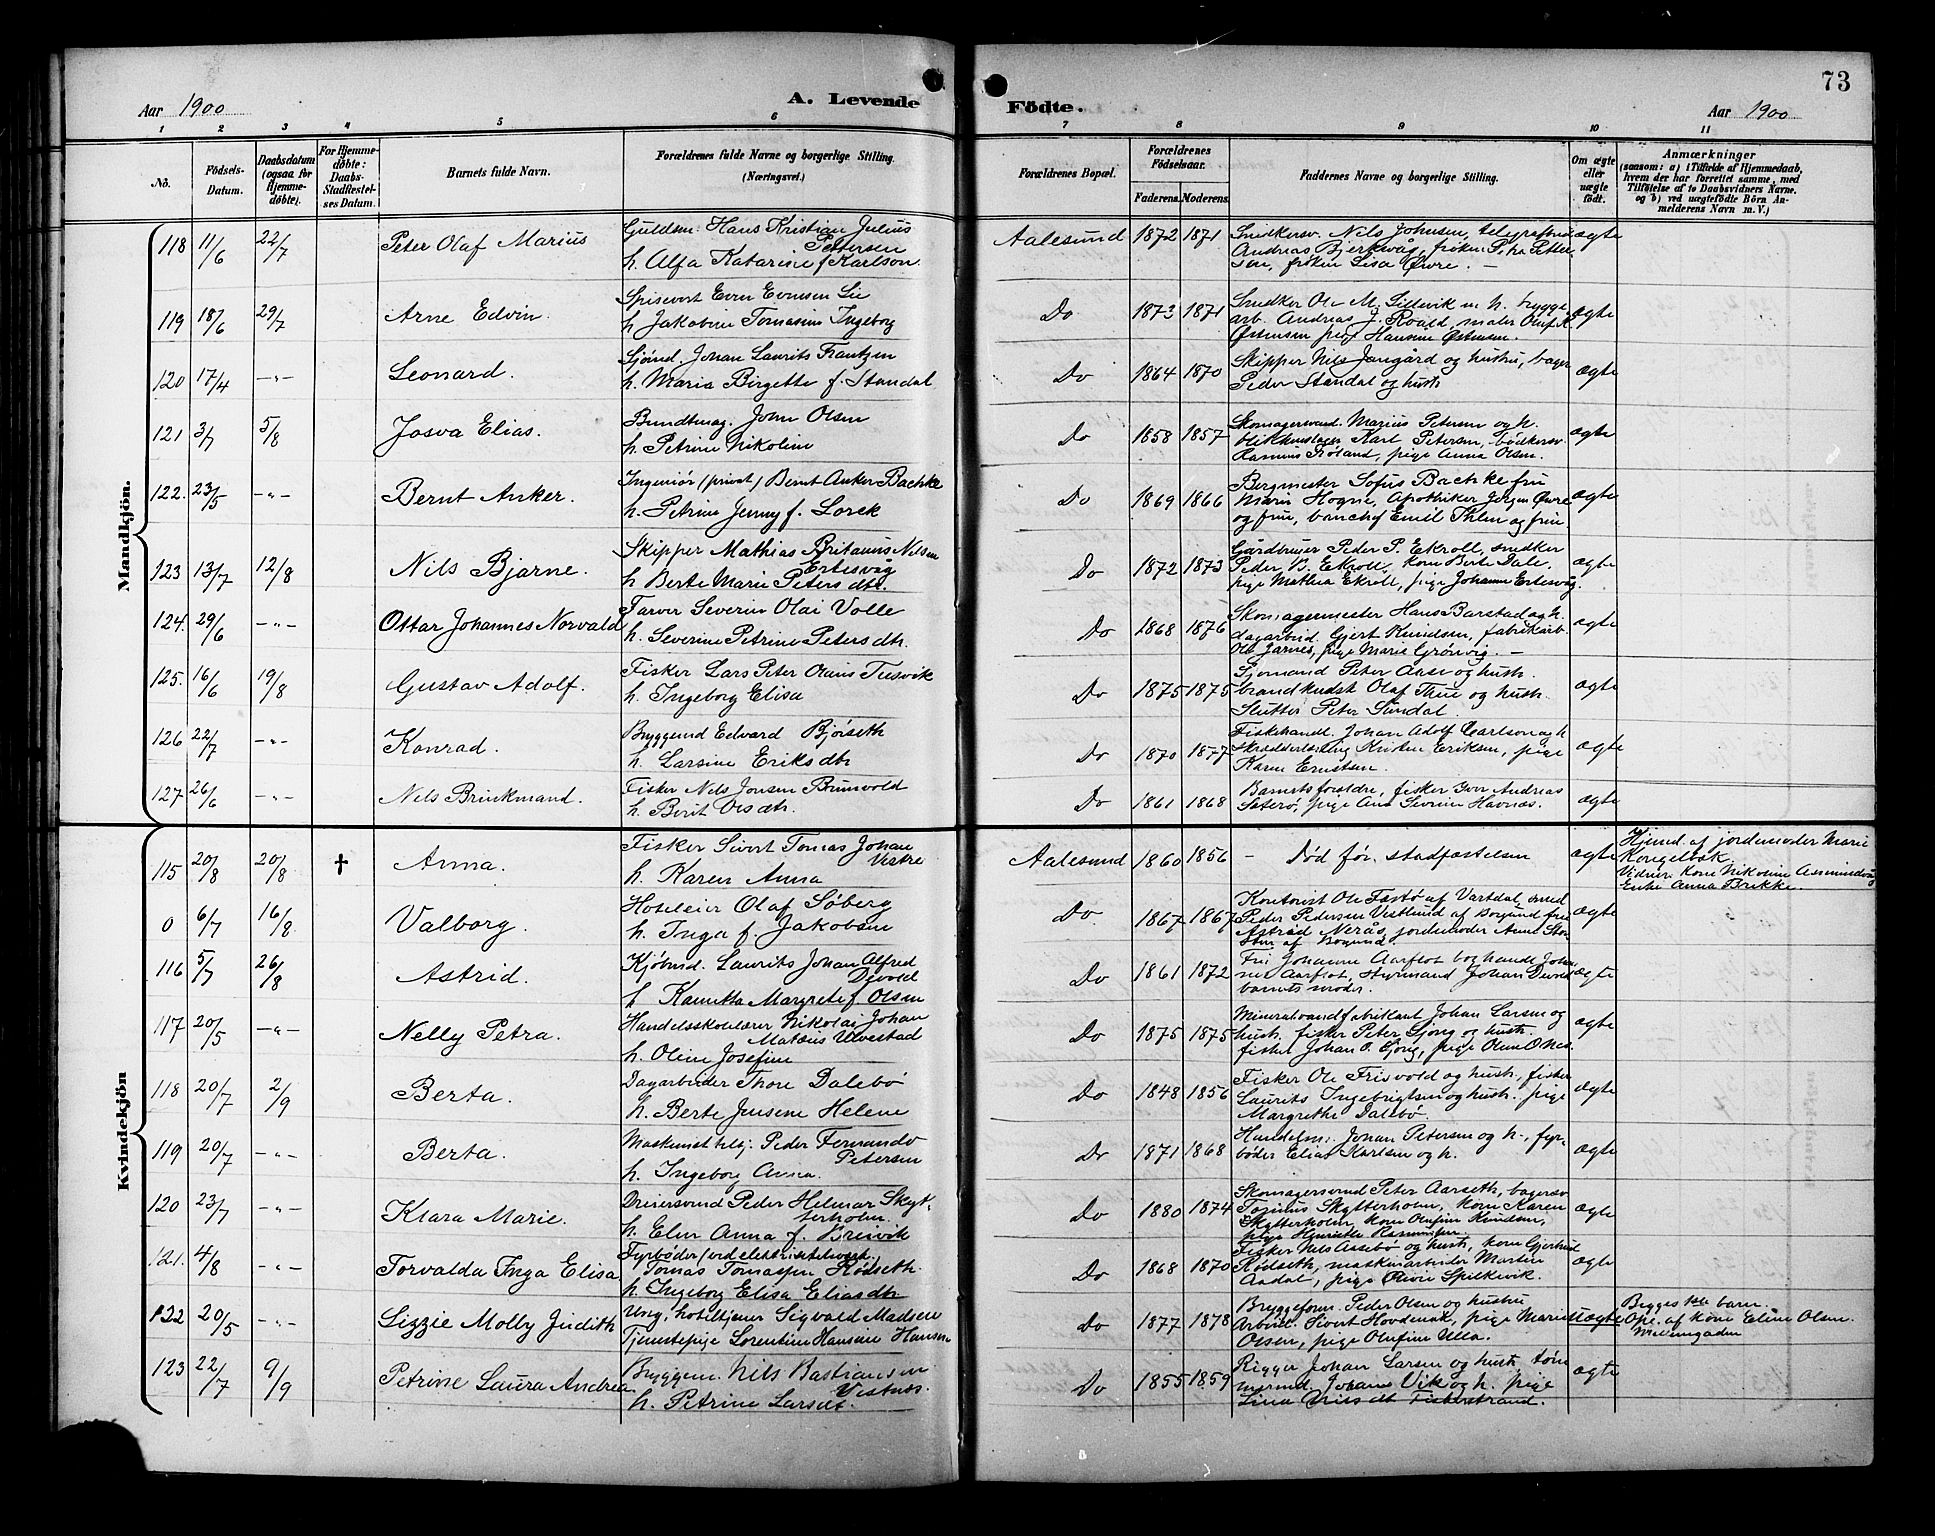 73
Aar 1900
A. Levende
Födte.
Aar 1900
1 2 3 4 5 6 7 8 9 10 11
No.
Födsels-
Datum.
Daabsdatum
(ogsaa for
Hjemme-
döbte).
For Hjemme-
döbte:
Daabs-
Stadfæstel-
ses Datum.
Barnets fulde Navn.
Forældrenes fulde Navne og borgerlige Stilling.
(Næringsvei.)
Forældrenes Bopæl.
Forældrenes
Födselsaar.
Faderens. Moderens.
Faddernes Navne og borgerlige Stilling.
Om ægte
eller
uægte
födt.
Anmærkninger
(saasom: a) i Tilfælde af Hjemmedaab,
hvem der har forrettet samme, med
Tilföielse af to Daabsvidners Navne,
og b) ved uægtefödte Börn An-
melderens Navn m. V.)
Mandkjön.
118 11/6 22/7 Peter Olaf Marius Guldsm. Hans Kristian Julius
Petersen
h. Alfa Katarine f. Karlson. Aalesund 1872 1871 Snedkersv. Nils Johnsen, telegrafbud
Andreas Bjerkvåg, frøken Petra Petter-
sen, frøken Lisa Øvre. ægte
119 18/6 29/7 Arne Edvin. Spisevert Even Evensen Lie
h. Jakobine Tomasine Ingeborg Do 1873 1871 Snedker Ole M. Lillevik m. h. brygge-
arb. Andreas J. Roald, maler Oluf K.
Østensen pige Hansine Østensen. ægte
120 17/4 -"- Leonard. Sjømd. Johan Laurits Frantzen
h. Maria Birgette f. Standal Do 1864 1870 Skipper Nils Jangård og hustru, bager
Peder Standal og hustr. ægte
121 3/7 5/8 Josva Elias. Bundtmag. John Olsen
h. Petrine Nikoline Do 1858 1857 Skomagersvend. Marius Petersen og h.
blikkenslager Karl Petersen, bødkersv.
Rasmus Røland, pige Anna Olsen. ægte
122. 23/5 -"- Bernt Anker. Ingeniør (privat) Bernt Anker Bachke
h. Petrine Jenny f. Lorck Do 1869 1866 Bergmester Sofus Bachke frue
Marie Hogne, Apotheker Jørgen Øvre
og frue, bankchef Emil Thlen og frue. ægte
123 13/7 12/8 Nils Bjarne. Skipper Mathias Britanus Nilsen
Ertesvåg
h Berte Marie Peters dtr. Do 1872 1873 Gårdbruger Peder P. Ekroll, snedker
Peder B. Ekroll, kone Berte Dale,
pige Mathea Ekroll, pige Johanne Ertesvåg. ægte
124. 29/6 -"- Ottar Johannes Norvald Farver Severin Olai Volle
h. Severine Petrine Peters dtr. Do 1868 1876 Skomagermester Hans Barstad og h.
dagarbeid. Gjert Knudsen, fabrikarb.
Ole Jarnes, pige Marie Grønvig. ægte
125. 16/6 19/8 Gustav Adolf. Fisker Lars Peter Olaus Tusvik
h. Ingeborg Elisa Do 1875 1875 Sjømand Peter Aase og hustr.
brandkudsk Olaf Thue og hustr.
Slutter Peter Sundal ægte
126 22/7 -"- Konrad. Bryggemd Edvard Bjørseth
h. Larsine Eriks dtr Do 1870 1877 Fiskehandl. Johan Adolf Carlson og h
Skrædderlærling Kristen Eriksen, pige
Karen Ernstsen. ægte
127 26/6 -"- Nils Brinkmand. Fisker Nils Jonsen Brunvold
h. Berit Ols dtr. Do 1861 1868 Barnets forældre, fisker Iver Andreas
Saterø, pige Ane Severine Havnæs. ægte
Kvindekjön
115 20/8 20/8 † Anna. Fisker Sivert Tomas Johan
Vestre
h. Karen Anna Aalesund 1860 1856 - Død før stadfæstelsen ægte Hjemd. af jordemoder Marie
Kongelbæk
Vidner: Kone Nikoline Assmindvåg
Enke Anna Brikke.
0 6/7 16/8 Valborg. Hoteleier Olaf Søberg
h. Inga f. Jakobsen Do. 1867 1867 Kontorist Ole Fastø af Vartdal, smed
Peder Pedersen Vestlund af Borgund frue
Astrid Nerås, jordemoder Anne Stor-
af Borgund. ægte
116 5/7 26/8 Astrid. Kjøbmd. Laurits Johan Alfred
Devold
h Kamitta Margrete f. Olsen Do 1861 1872 Fru Johanne Aarflot boghandl. Johan-
nes Aarflot, styrmand Johan Devold
barnets moder. ægte
117 20/5 -"- Nelly Petra. Handelsskolelærer Nikolai Johan
Matæus Ulvestad
h. Oline Josefine Do 1875 1875 Mineralvandfabrikant Johan Larsen og
hustr. fisker Peter Gjørg og hustr.
fisker Johan P. Gjørg, pige Oline Ones. ægte
118 20/7 2/9 Berta. Dagarbeider Thore Dalebø
h. Berte Jensine Helene Do 1848 1856 Fisker Ole Frisvold og hustr. fisker
Laurits Ingebrigtsen og hustr. pige
Margrethe Dalebø. ægte
119 20/7 -"- Berta. Maskinist Peder Fernando
Petersen
h. Ingeborg Anna. Do 1871 1868 Handelsm. Johan Petersen og h., fyr-
bøder Elias Karlsen og h. ægte
120 23/7 -"- Klara Marie. Dreiersvend Peder Helmar Skyt-
terholm.
h. Elen Anna f. Breivik Do 1880 1874 Skomagersvend Peter Aarseth, bagersv.
Tomas Skytterholm, kone Karen
Skytterholm, kone Olufine Knudsen,
pige Henriette Rasmussen ægte
121. 4/8 -"- Torvalda Inga Elisa Fyrbøder (ved elektricitetsverk.)
Tomas Tomassen Rødseth
h. Ingeborg Elisa Elias dtr Do 1868 1870 Fisker Nils Aasebø og hustr, kone Gjertrud
Rødseth, maskinarbeider Martin
Aadal, pige Olivie Spilkevik. ægte
122 20/5 -"- Lizzie Molly Judith Ung. hoteltjener Sigvald Madsen
Tjenestepige Lorentine Hansine Hansen Do 1877 1878 Bryggeform. Peder Olsen og hustru
Arbeid. Sivert Hovdenak, pige Marie
Olsen, pige Olufine Ulla. uægte Begges 1ste barn.
Opg. af kone Eline Olsen.
123 22/7 9/9 Petrine Laura Andrea Bryggem. Nils Bastiansen
Vestnes.
h. Petrine Larsdt. Do 1855 1859 Rigger Johan Larsen og hustr. tøm-
mermd. Johan Vik og h. pige
Lina Nils dt Fiskerstrand. ægte